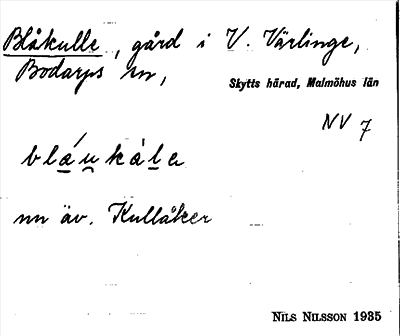 Blåkulle, gård i V. Värlinge,
Bodarps sn,
Skytts härad, Malmöhus län
NV 7
bláu̯kàlɐ
nu äv. Kullåker
NILS NILSSON 1935